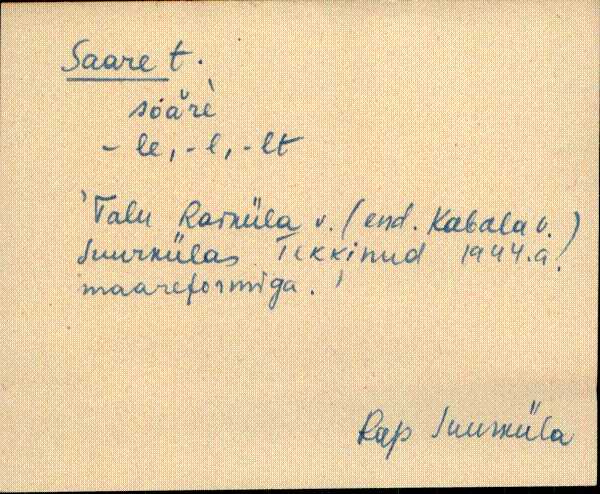 Saare t.
sóăre`
- le, -l, -lt
'Talu Raiküla v. (end. Kabala v.)
Suurkülas Tekkinud 1944.a.
maareformiga.'
Rap Suurküla